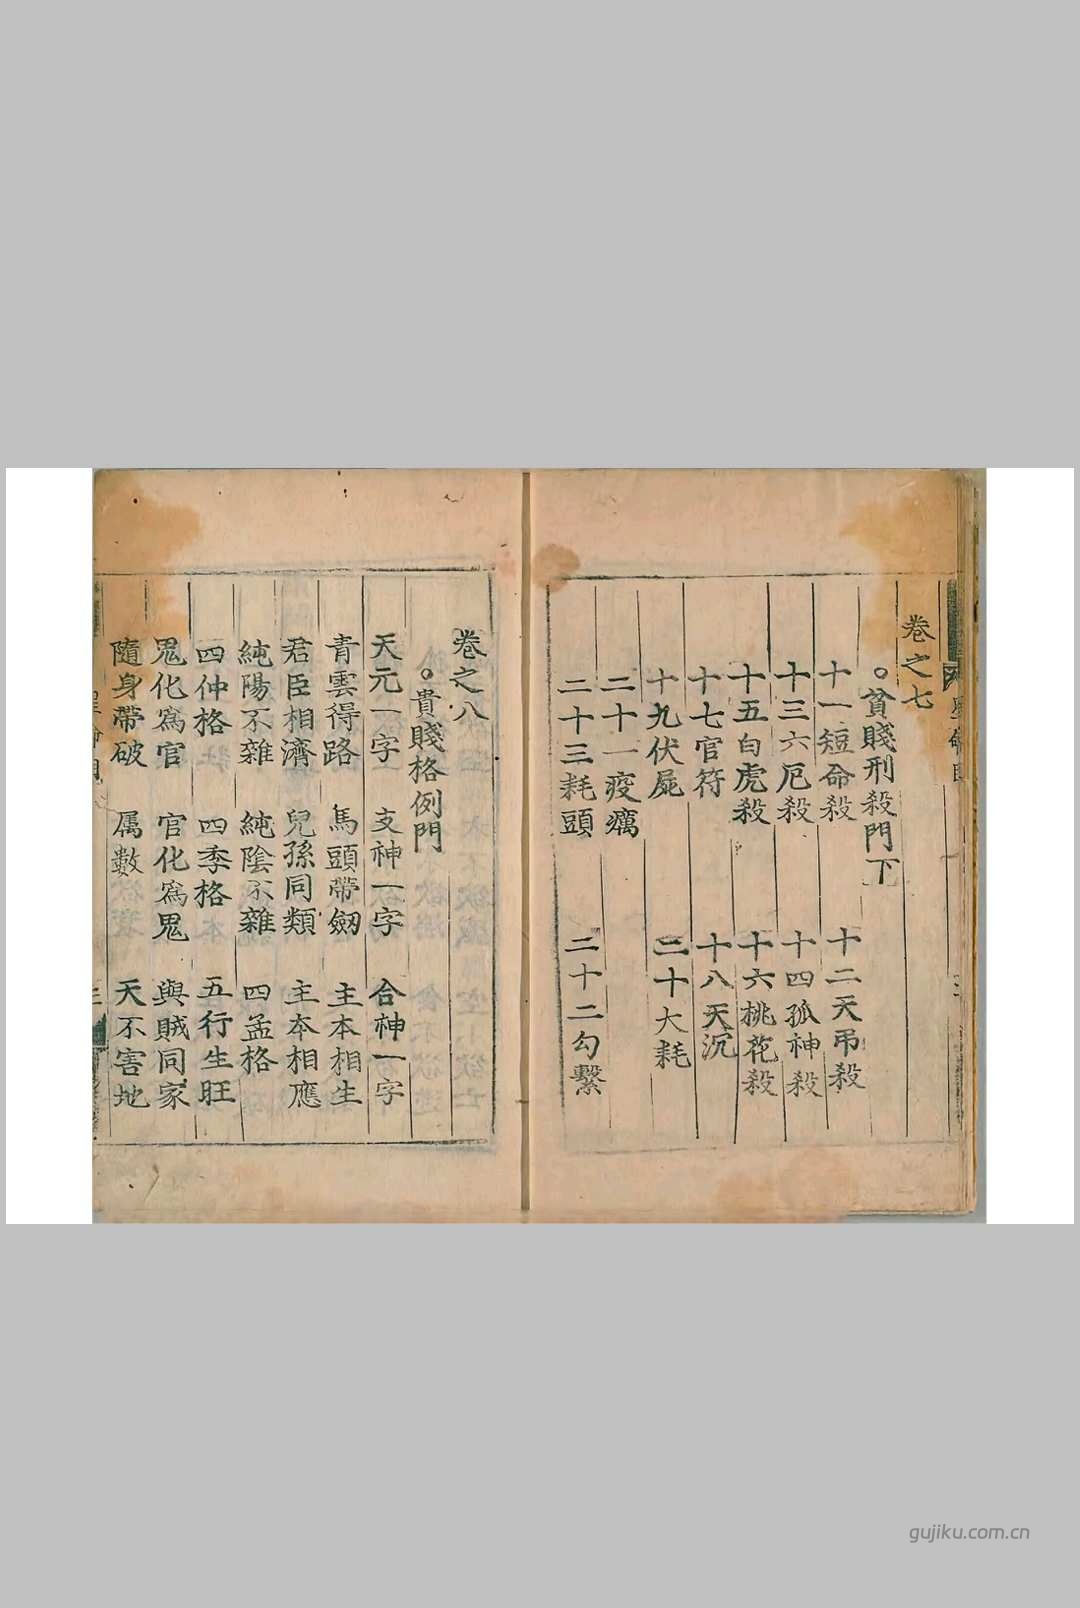 卷之七
○貧賤刑殺門下
十一短命殺 十二天吊殺
十三六厄殺 十四孤神殺
十五白虎殺 十六桃花殺
十七官符 十八天沉
十九伏屍 二十大耗
二十一疫癘 二十二勾繫
二十三耗頭
卷之八
○貴賤格例門
天元一字 支神一字 合神一字
青雲得路 馬頭帶劔 主本相生
君臣相濟 兒孫同類 主本相應
純陽不雜 純隂不雜 四孟格
四仲格 四季格 五行生旺
鬼化爲官 官化爲鬼 與賊同家
隨身帶破 属數 天不害地
gujiku.com.cn